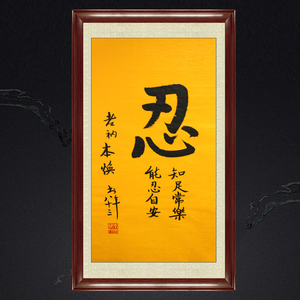 忍
知足常樂
能忍自安
老衲本煥